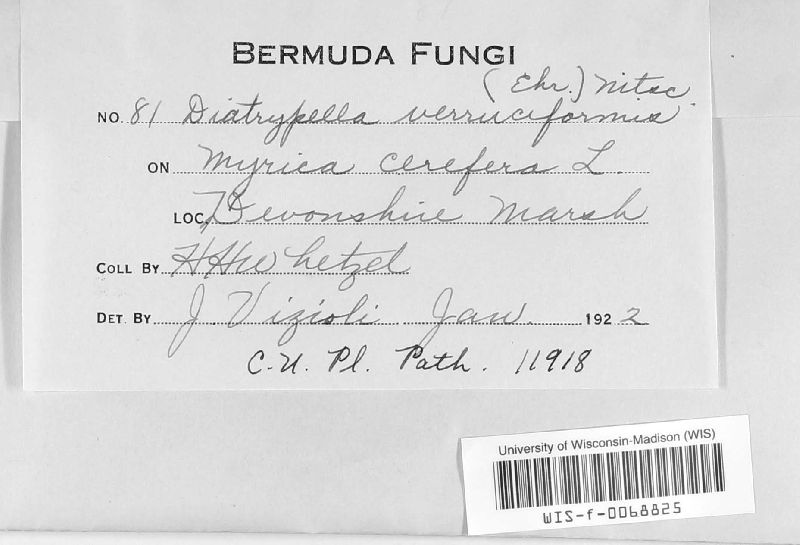 BERMUDA FUNGI
(Ehr.) Nitsc.
NO. 81 Diatrypella verruciformis
ON Myrica cerefera L.
LOC. Devonshire Marsh
COLL BY HHWhetzel
DET. BY J. Vizioli Jan. 1922
C.U. Pl. Path. 11918
University of Wisconsin-Madison (WIS)
WIS-f-0068825